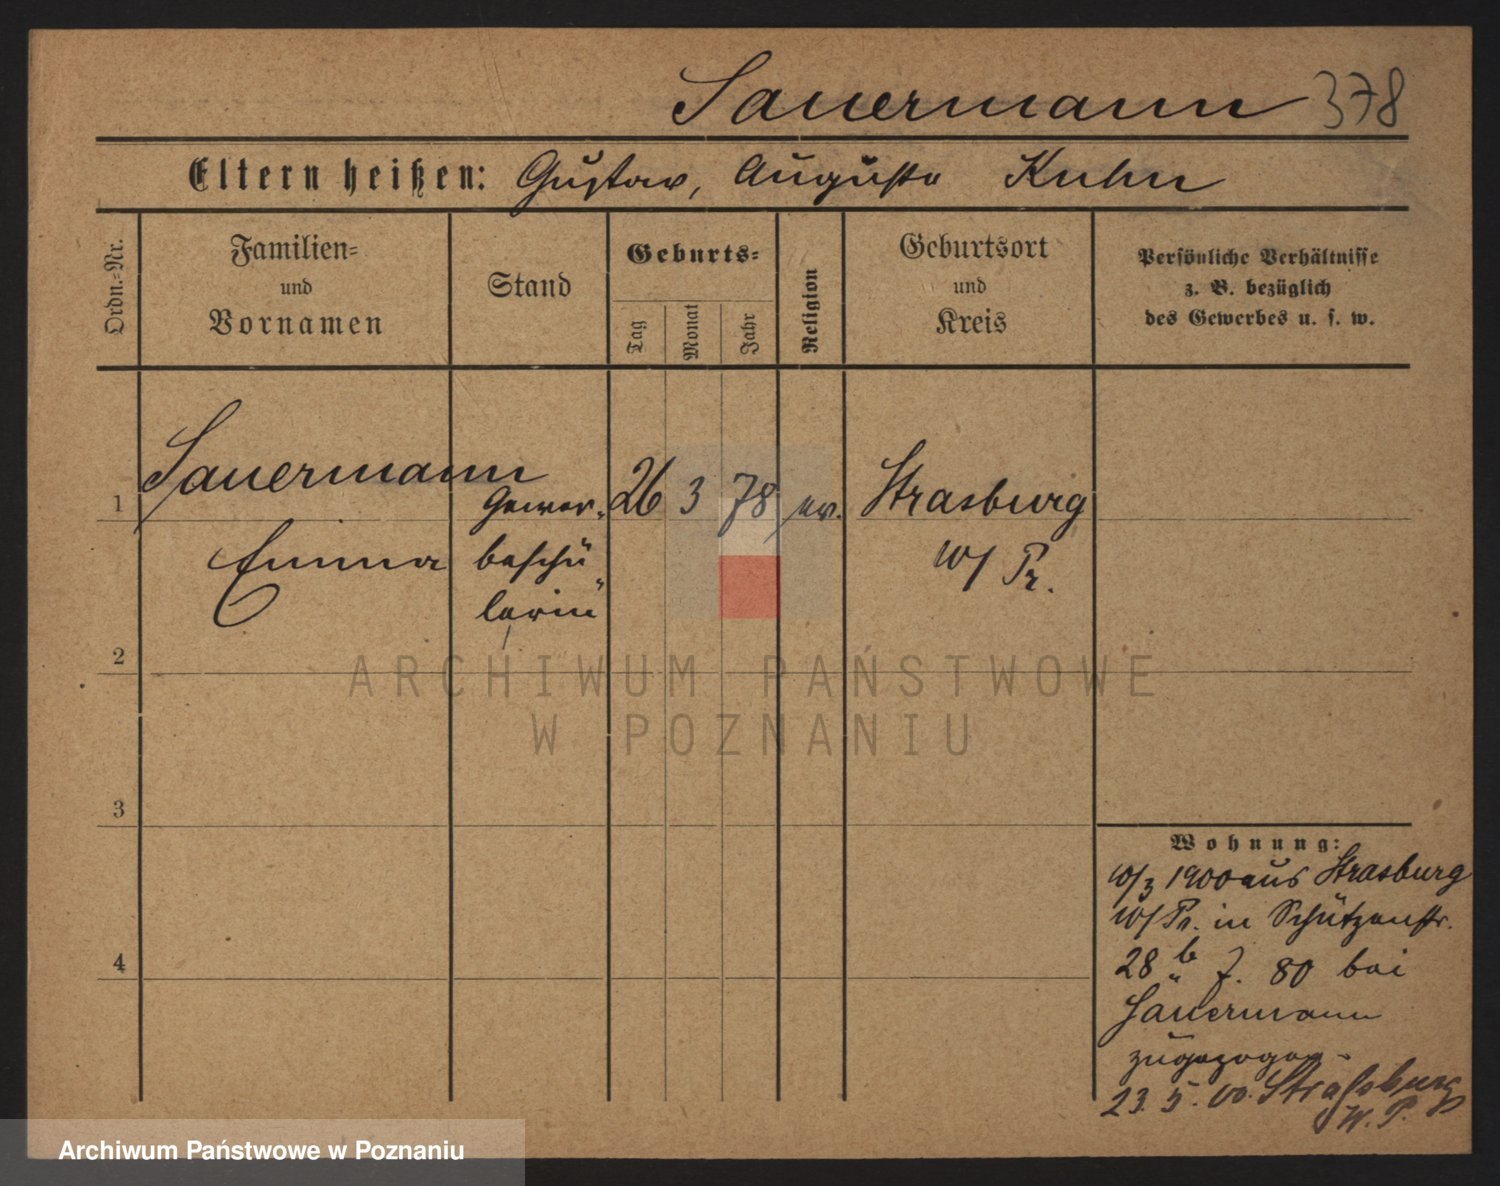 Sauermann 378
Eltern heißen: Gustav, Auguste Kuhn
Ordn.=Nr.
Familien=
und
Vornamen
Stand
Geburts=
Tag
Monat
Jahr
Religion
Geburtsort
und
Kreis
Persönliche Verhältnisse
z. B. bezüglich
des Gewerbes u. s. w.
1
Sauermann
Emma
Gewer-
beschü
lerin
26 3 78 ev.
Strasburg
W/ Pr.
2
3
4
Wohnung:
10/3 1900 aus Strasburg
W/Pr. in Schützenstr.
28 b 80 bei
Sauermann
zugezogen
23. 5. 00. Strassburg
W. P.
ARCHIWUM PAŃSTWOWE
W POZNANIU
Archiwum Państwowe w Poznaniu